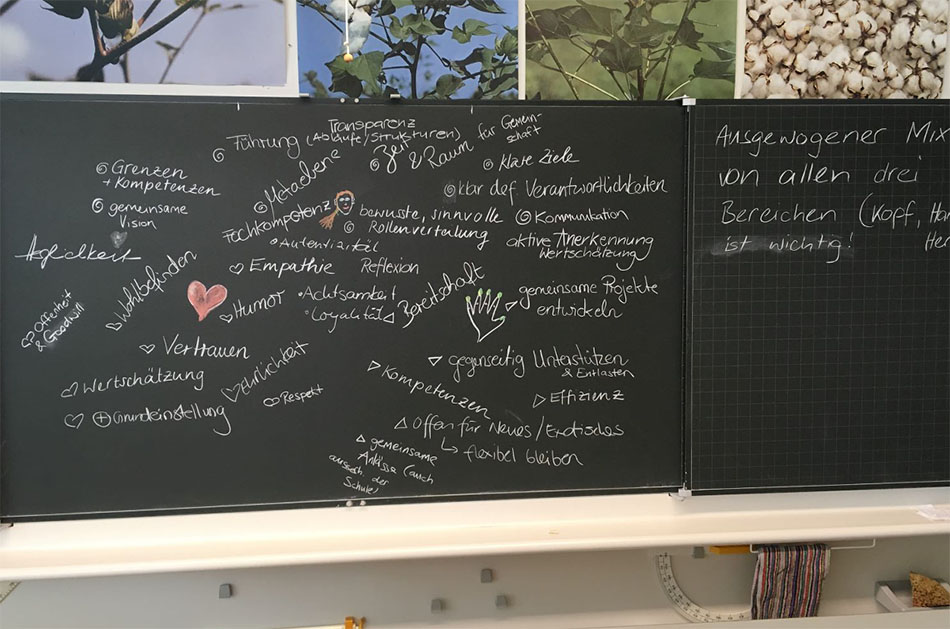 Transparenz
Führung (Abläufe/Strukturen)
Zeit & Raum für Gemein-
schaft
Klare Ziele
Grenzen
+ Kompetenzen
Metaebene
klar def Verantwortlichkeiten
gemeinsame
Vision
Fachkompetenz
bewusste, sinnvolle
Rollenverteilung
Kommunikation
aktive Anerkennung
Wertschätzung
Empathie
Reflexion
Wohlbefinden
Humor
Achtsamkeit
Loyalität
Bereitschaft
gemeinsame Projekte
entwickeln
Offenheit
& Goodwill
Vertrauen
gegenseitig Unterstützen
& Entlasten
Wertschätzung
Ehrlichkeit
Respekt
Kompetenzen
Effizienz
+ Grundeinstellung
Offen für Neues/Exotisches
↳ flexibel bleiben
gemeinsame
Anlässe (auch
ausserh. der
Schule)
Ausgewogener Mix
von allen drei
Bereichen (Kopf,
ist wichtig!